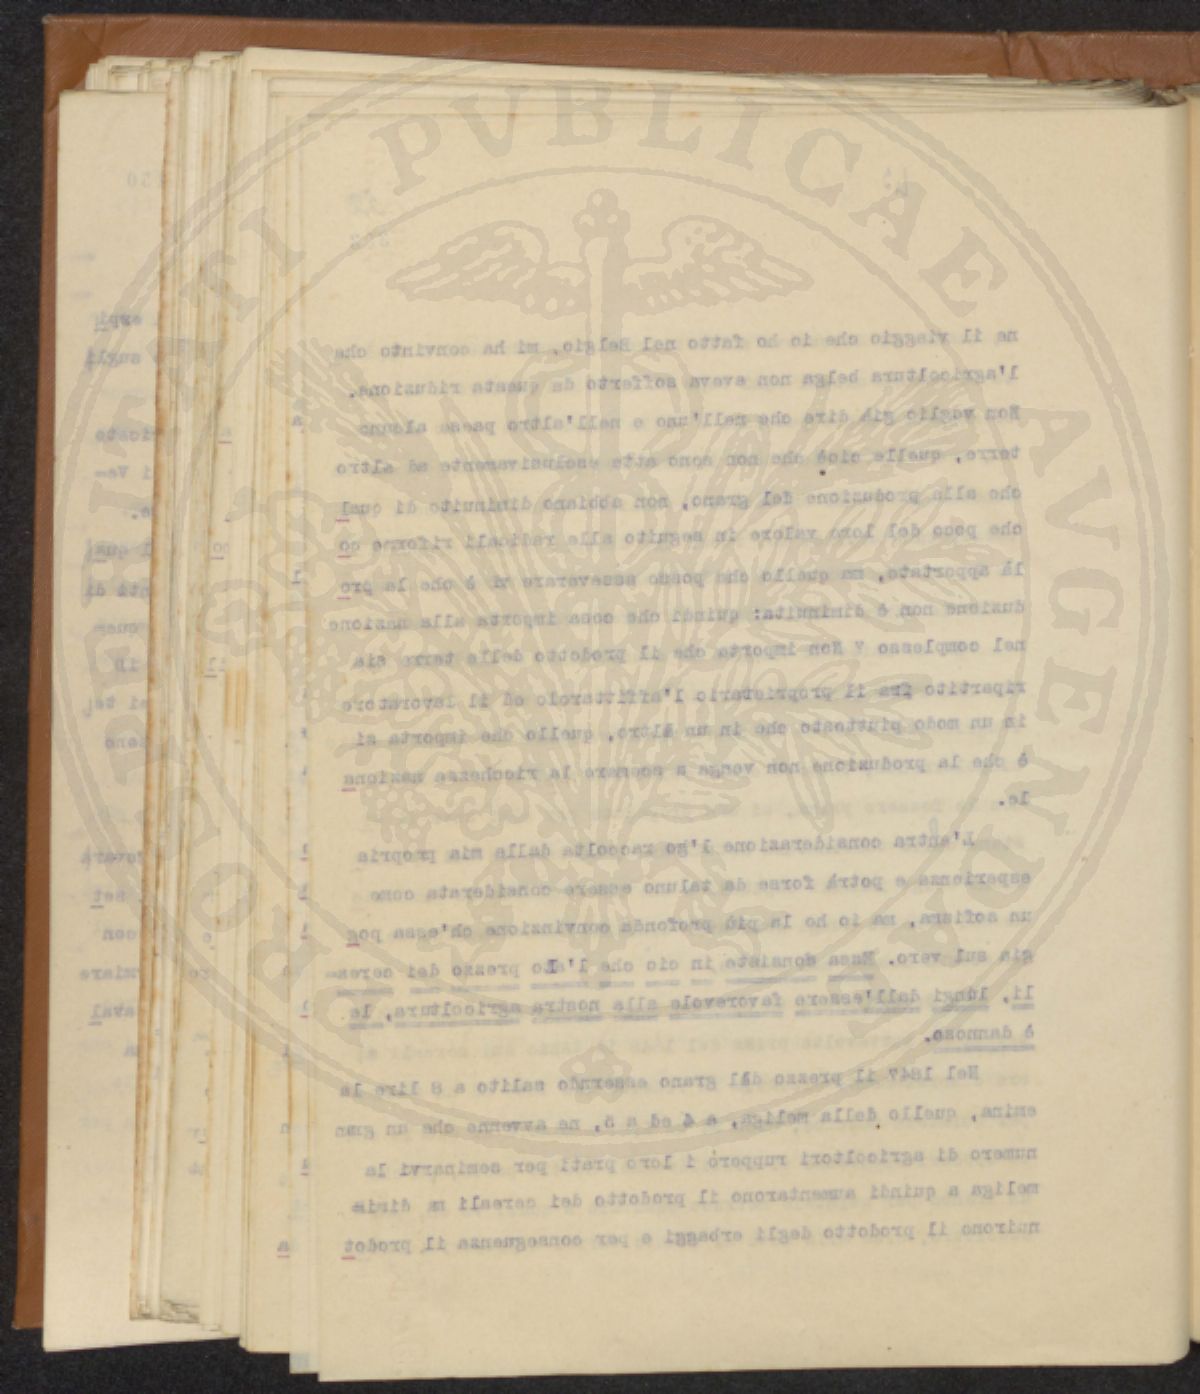 PROSPERITATI PVBLICAE AVGENDAE
ne il viaggio che io ho fatto nel Belgio, mi ha convinto che
l'agricoltura belga non aveva sofferto da questa riduzione.
Non voglio già dire che nell'uno e nell'altro paese alcune
terre, quelle cioè che non sono atte esclusivamente ad altro
che alla produzione del grano, non abbiano diminuito di qual
che poco del loro valore in seguito alle radicali riforme co
là apportate, ma quello che posso asseverare vi è che la pro
duzione non è diminuita: quindi che cosa importa alla nazione
nel complesso ? Non importa che il prodotto delle terre sia
ripartito fra il proprietario l'affittaiolo ed il lavoratore
in un modo piuttosto che in un altro, quello che importa si
è che la produzione non venga a scemare la ricchezza naziona
le.
L'antra considerazione l'go raccolta dalla mia propria
esperienza e potrà forse da taluno essere considerata come
un sofisma, ma io ho la più profonda convinzione ch'essa pog
gia sul vero. Essa consiste in ciò che l'alto prezzo dei cerea-
li, lungi dall'essere favorevole alla nostra agricoltura, le
è dannoso.
Nel 1847 il prezzo del grano essendo salito a 8 lire la
emina, quello della meliga, a 4 ed a 5, ne avvenne che un gran
numero di agricoltori ruppero i loro prati per seminarvi la
meliga a quindi aumentarono il prodotto dei cereali ma dimi=
nuirono il prodotto degli erbaggi e per conseguenza il prodot